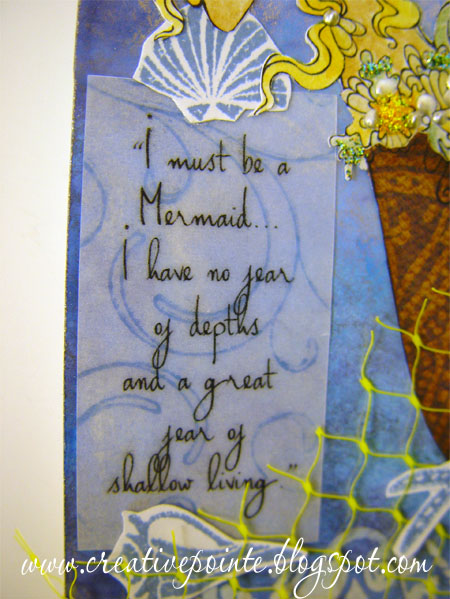 "I must be a
Mermaid...
I have no fear
of depths
and a great
fear of
shallow living."
www.creativepointe.blogspot.com